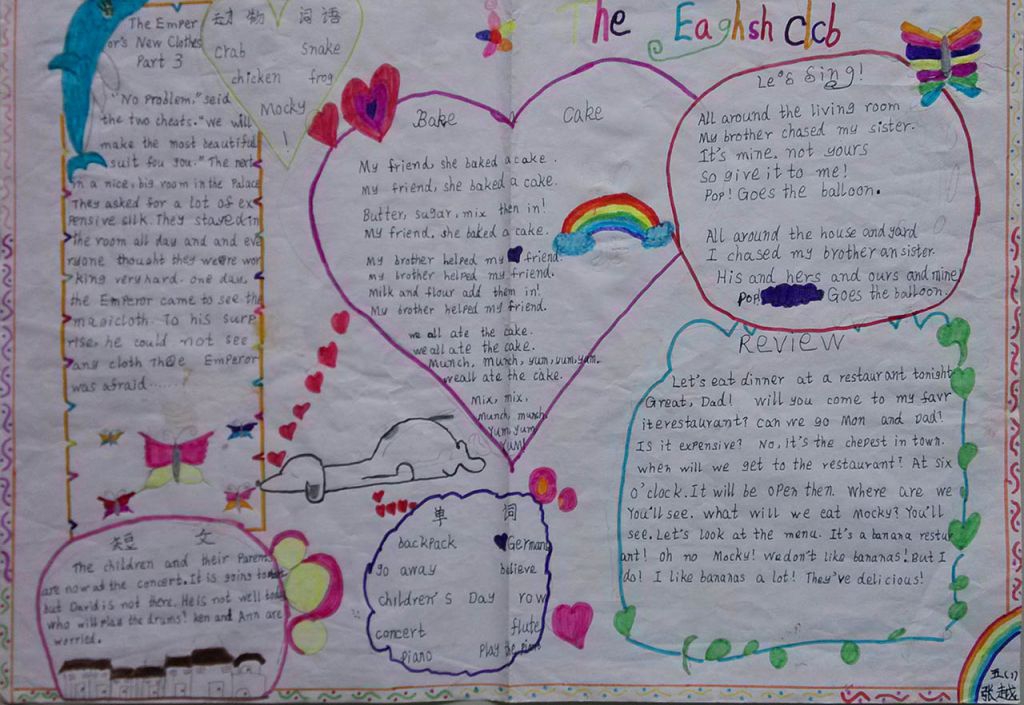 The Eaghsh clcb
The Emper
or's New Clothes
Part 3
"No problem," seid
the two cheats. "we will
make the most beautiful
suit fou you." The next
in a nice, big room in the Palace
They asked for a lot of ex
pensive silk. They stayed in
the room all day and and eve
ryone thought they weere wor
king very hard. one day,
the Emperor came to see the
magicloth. To his surp
rise, he could not see
any cloth The Emperor
was afraid.......
动物 词语
crab snake
chicken frog
Mocky
!
Bake Cake
My friend, she baked a cake.
My friend, she baked a cake.
Butter, sugar, mix then in!
My friend, she baked a cake.
My brother helped my friend.
my brother helped my friend.
Milk and flour add them in!
My brother helped my friend.
we all ate the cake.
we all ate the cake.
Munch, munch, yum, yum, yum,
we all ate the cake.
Mix, mix,
Munch, munch,
Yum, yum
Yum!
Let's Sing!
All around the living room
My brother chased my sister.
It's mine, not yours
so give it to me!
Pop! Goes the balloon.
All around the house and yard
I chased my brother an sister.
His and hers and ours and mine
Pop! Goes the balloon.
Review
Let's eat dinner at a restaurant tonight
Great, Dad! will you come to my favr
iterestaurant? can we go Mon and Dad?
Is it expensive? No, it's the chepest in town.
when will we get to the restaurant? At six
o'clock. It will be open then. Where are we
You'll see. what will we eat Mocky? You'll
see. Let's look at the menu. It's a banana restur
ant! oh no Mocky! we don't like bananas! But I
do! I like bananas a lot! They've delicious!
短文
The children and their Parents
are now at the concert. It is going to
but David is not there. He is not well today
who will play the drums? ken and Ann are
worried.
单词
backpack Germany
go away believe
children's Day row
concert flute
piano play the piano
五(1)
张越